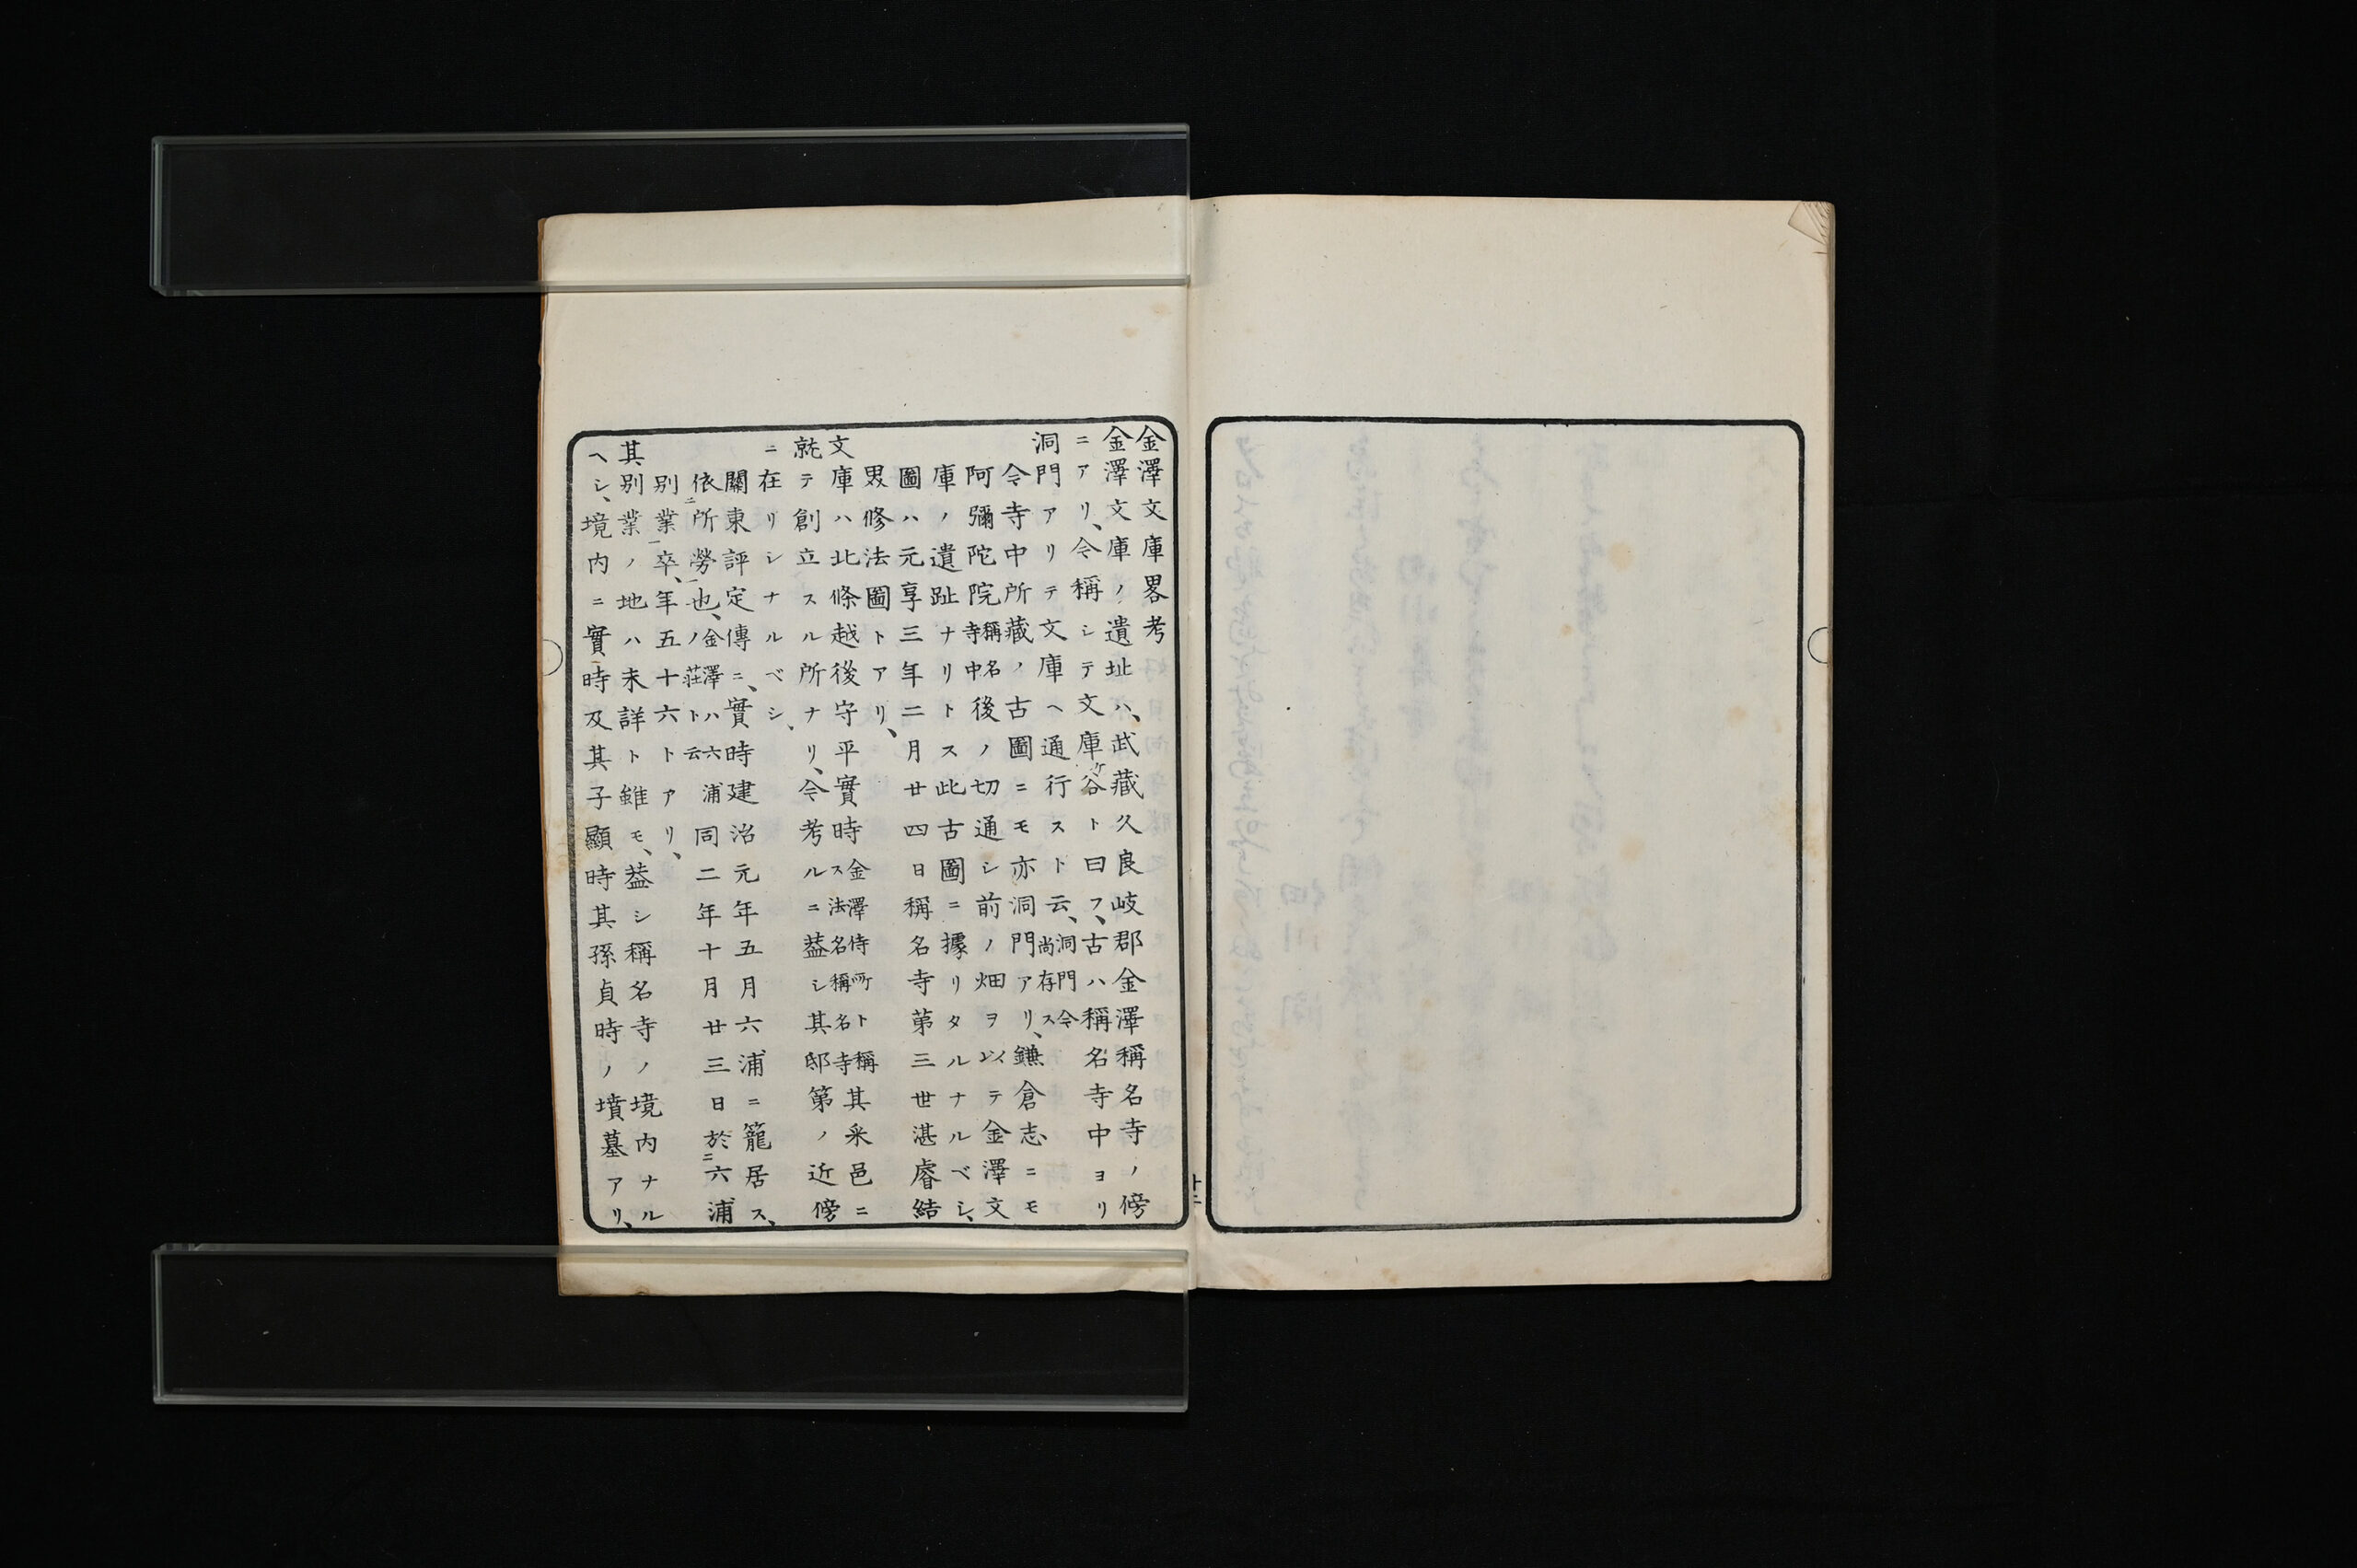 金澤文庫畧考
金澤文庫ノ遺址ハ、武藏久良岐郡金澤稱名寺ノ傍
ニアリ、今稱シテ文庫ケ谷ト曰フ、古ハ稱名寺中ヨリ
洞門アリテ文庫ヘ通行スト云、洞門今尚存ス
今寺中所藏ノ古圖ニモ亦洞門アリ、鐮倉志ニモ
阿彌陀院稱名寺中後ノ切通シ前ノ畑ヲ以テ金澤文
庫ノ遺趾ナリトス此古圖ニ據リタルナルベシ、
圖ハ元享三年二月廿四日稱名寺第三世湛睿結
界修法圖トアリ、
文庫ハ北條越後守平實時金澤侍所ト稱ス法名稱名寺其采邑ニ
就テ創立スル所ナリ、今考ルニ葢シ其邸第ノ近傍
ニ在リシナルベシ、
關東評定傳ニ、實時建治元年五月六浦ニ籠居ス、
依ニ所勞一也、金澤ハ六浦ノ莊ト云同二年十月廿三日於ニ六浦
別業一卒、年五十六トアリ、
其別業ノ地ハ未詳ト雖モ、葢シ稱名寺ノ境内ナル
ヘシ、境内ニ實時及其子顯時其孫貞時ノ墳墓アリ、
廿二